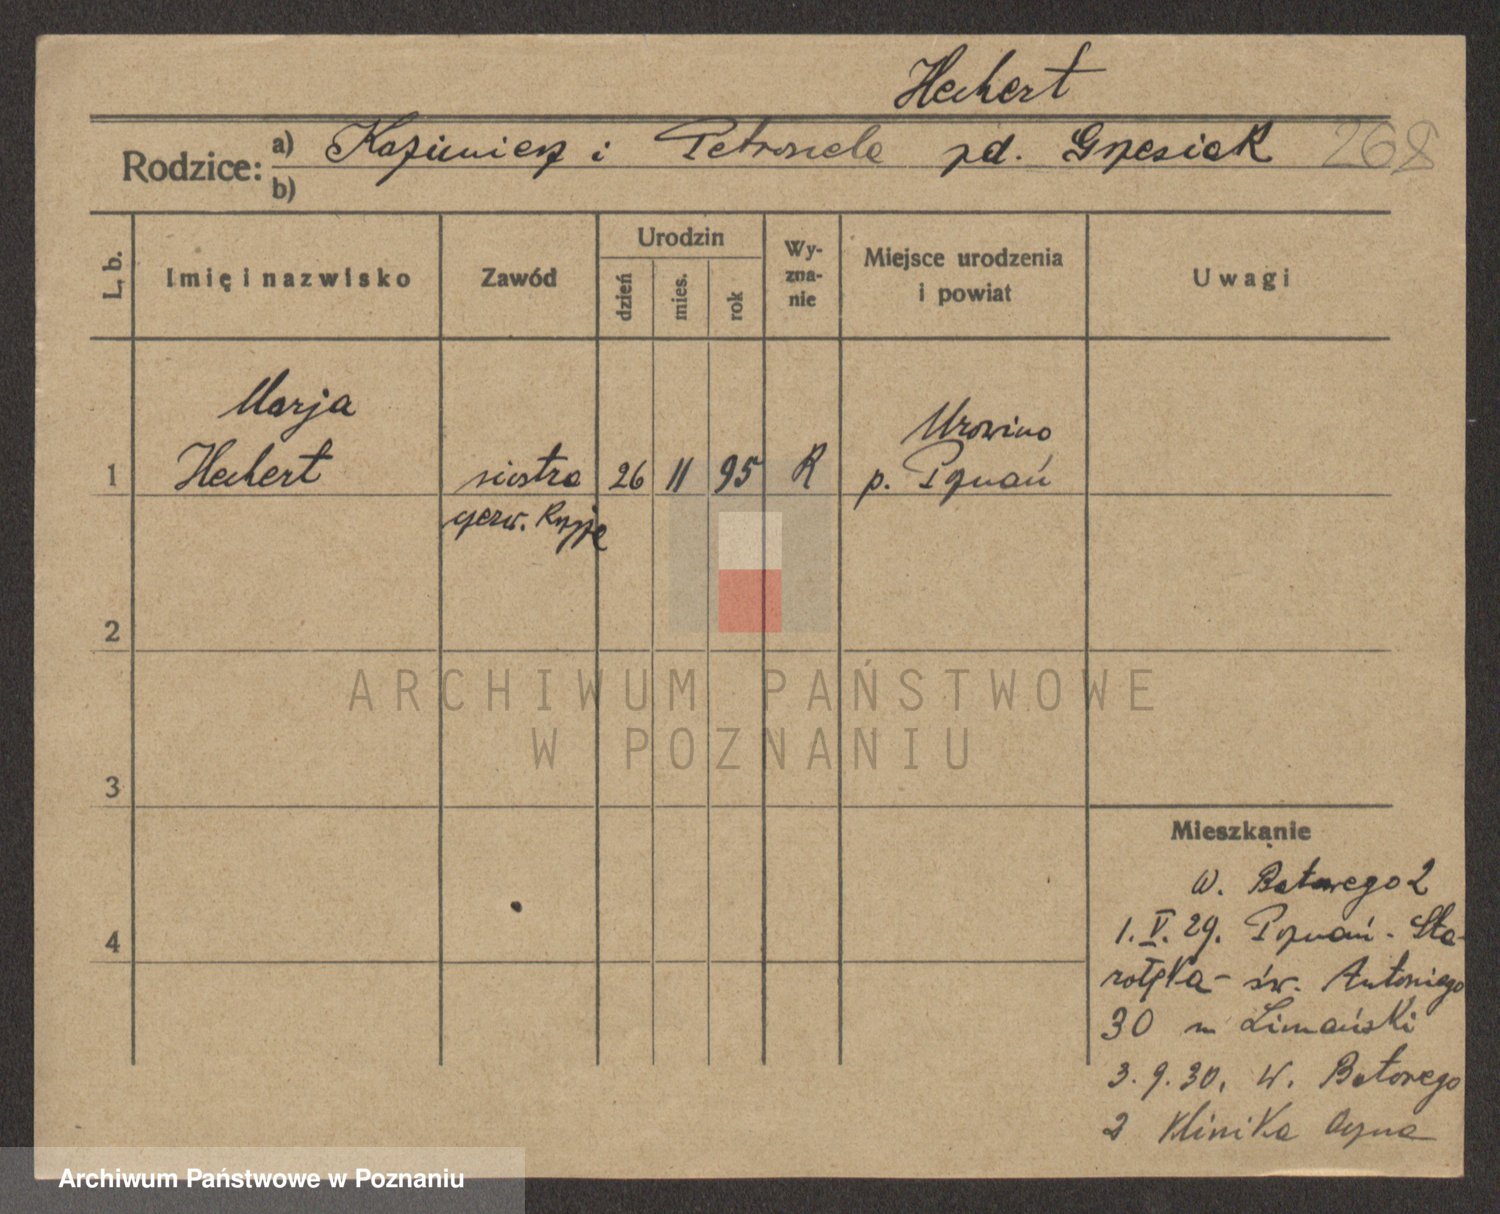 Hechert
Rodzice: a) Kazimierz i Petronela zd. Grzesiak 268
b)
L. b.
Imię i nazwisko
Zawód
Urodzin
dzień
mies.
rok
Wy-
zna-
nie
Miejsce urodzenia
i powiat
Uwagi
Marja
1 Hechert siostra 26 11 95 R
czerw. Krzyża
Mrowino
p. Poznań
2
3
4
ARCHIWUM PAŃSTWOWE
W POZNANIU
Mieszkanie
W. Batorego 2
1. V. 29. Poznań - Sta-
rołęka - św. Antoniego
30 m Limański
3. 9. 30. W. Batorego
2 Klinika Oczna
Archiwum Państwowe w Poznaniu